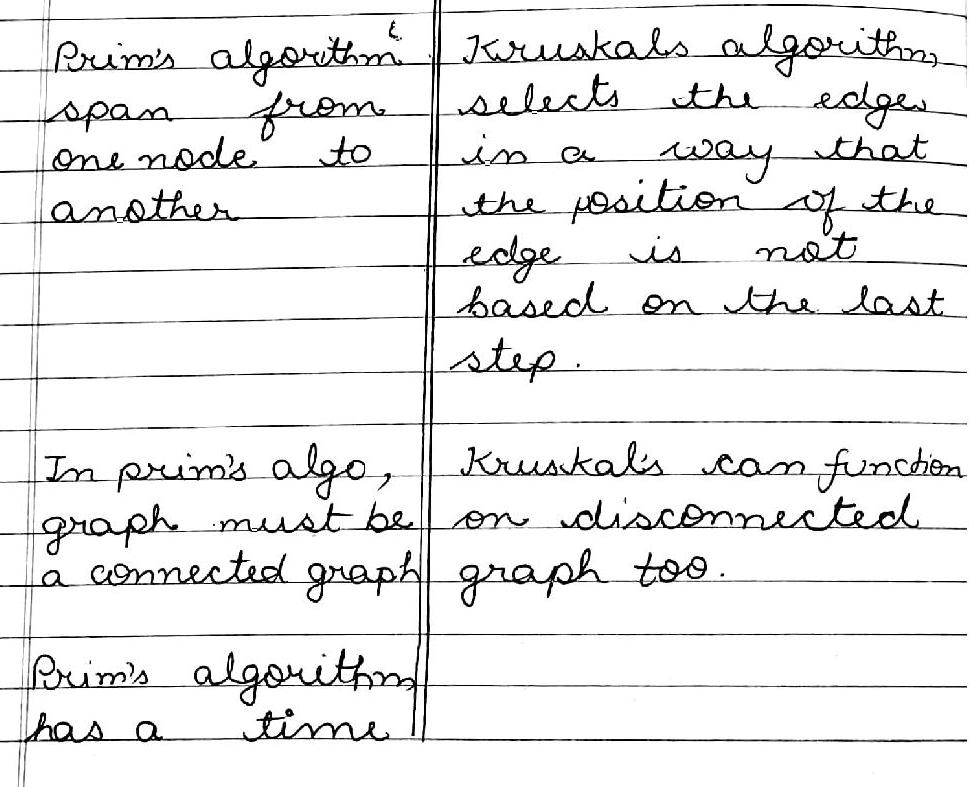 Prim's algorithm
span from
one node to
another
Kruskals algorithm
selects the edges
in a way that
the position of the
edge is not
based on the last
step.
In prim's algo,
graph must be
a connected graph
Kruskal's can function
on disconnected
graph too.
Prim's algorithm
has a time